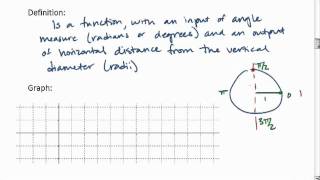 Definition:
Is a function, with an input of angle
measure (radians or degrees) and an output
of horizontal distance from the vertical
diameter (radii)
π/2
π
1
0
1
3π/2
Graph: